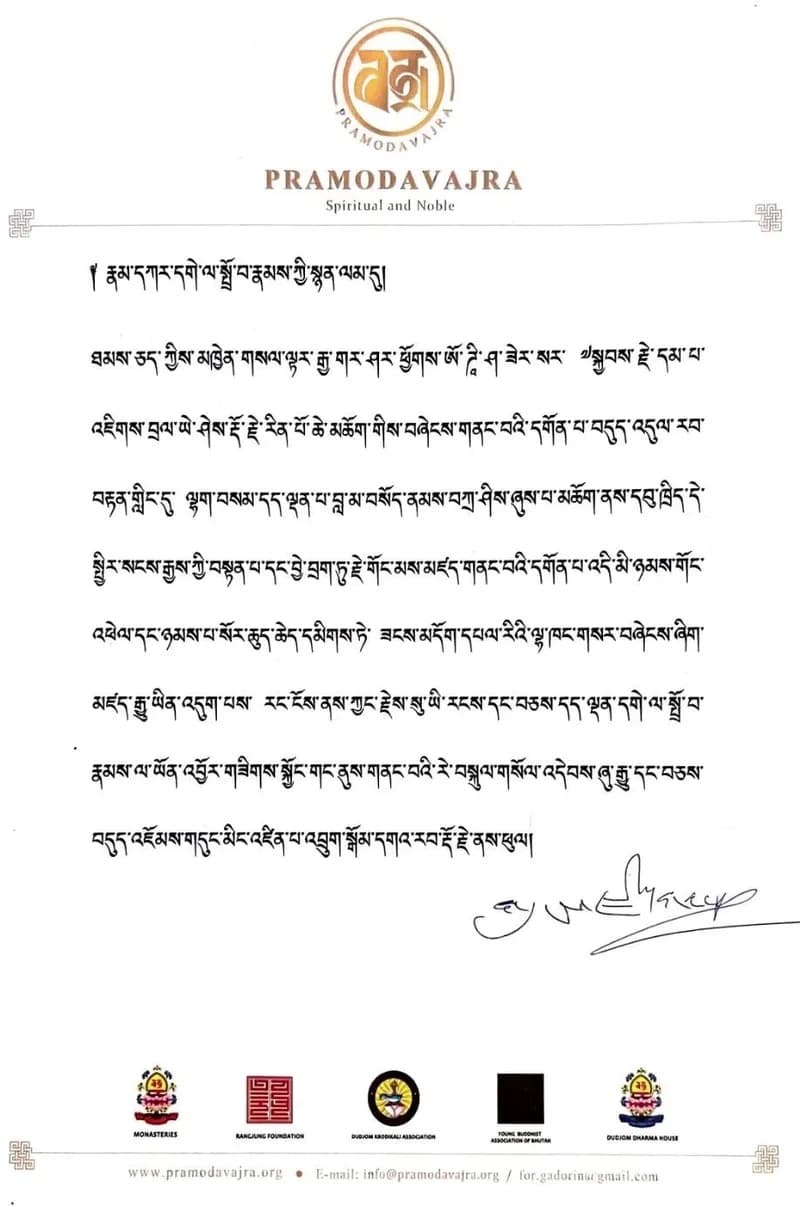 PRAMODAVAJRA
PRAMODAVAJRA
Spiritual and Noble
༉ རྣམ་དཀར་དགེ་ལ་སྤྲོ་བ་རྣམས་ཀྱི་སྙན་ལམ་དུ།
ཐམས་ཅད་ཀྱིས་མཁྱེན་གསལ་ལྟར་རྒྱ་གར་ཤར་ཕྱོགས་ཨོ་ཌི་ཤ་ཟེར་སར་ ༧སྐྱབས་རྗེ་དམ་པ་
འཇིགས་བྲལ་ཡེ་ཤེས་རྡོ་རྗེ་རིན་པོ་ཆེ་མཆོག་གིས་བཞེངས་གནང་བའི་དགོན་པ་བདུད་འདུལ་རབ་
བརྟན་གླིང་དུ་ ལྷག་བསམ་དད་ལྡན་པ་བླ་མ་བསོད་ནམས་བཀྲ་ཤིས་ཞུས་པ་མཆོག་ནས་དབུ་ཁྲིད་དེ་
སྤྱིར་སངས་རྒྱས་ཀྱི་བསྟན་པ་དང་བྱེ་བྲག་ཏུ་རྗེ་གོང་མས་མཛད་གནང་བའི་དགོན་པ་འདི་མི་ཉམས་གོང་
འཕེལ་དང་ཉམས་པ་སོར་ཆུད་ཆེད་དམིགས་ཏེ་ ཟངས་མདོག་དཔལ་རིའི་ལྷ་ཁང་གསར་བཞེངས་ཞིག་
མཛད་རྒྱུ་ཡིན་འདུག་པས་ རང་ངོས་ནས་ཀྱང་རྗེས་སུ་ཡི་རངས་དང་བཅས་དད་ལྡན་དགེ་ལ་སྤྲོ་བ་
རྣམས་ལ་ཡོན་འབྱོར་གཟིགས་སྐྱོང་གང་ནུས་གནང་བའི་རེ་བསྐུལ་གསོལ་འདེབས་ཞུ་རྒྱུ་དང་བཅས་
བདུད་འཇོམས་གདུང་མིང་འཛིན་པ་འབྲུག་སྒོམ་དགའ་རབ་རྡོ་རྗེ་ནས་ཕུལ།
MONASTERIES
RANGJUNG FOUNDATION
DUDJOM KRODIKALI ASSOCIATION
YOUNG BUDDHIST
ASSOCIATION OF BHUTAN
DUDJOM DHARMA HOUSE
www.pramodavajra.org • E-mail: info@pramodavajra.org / for.gadorin@gmail.com